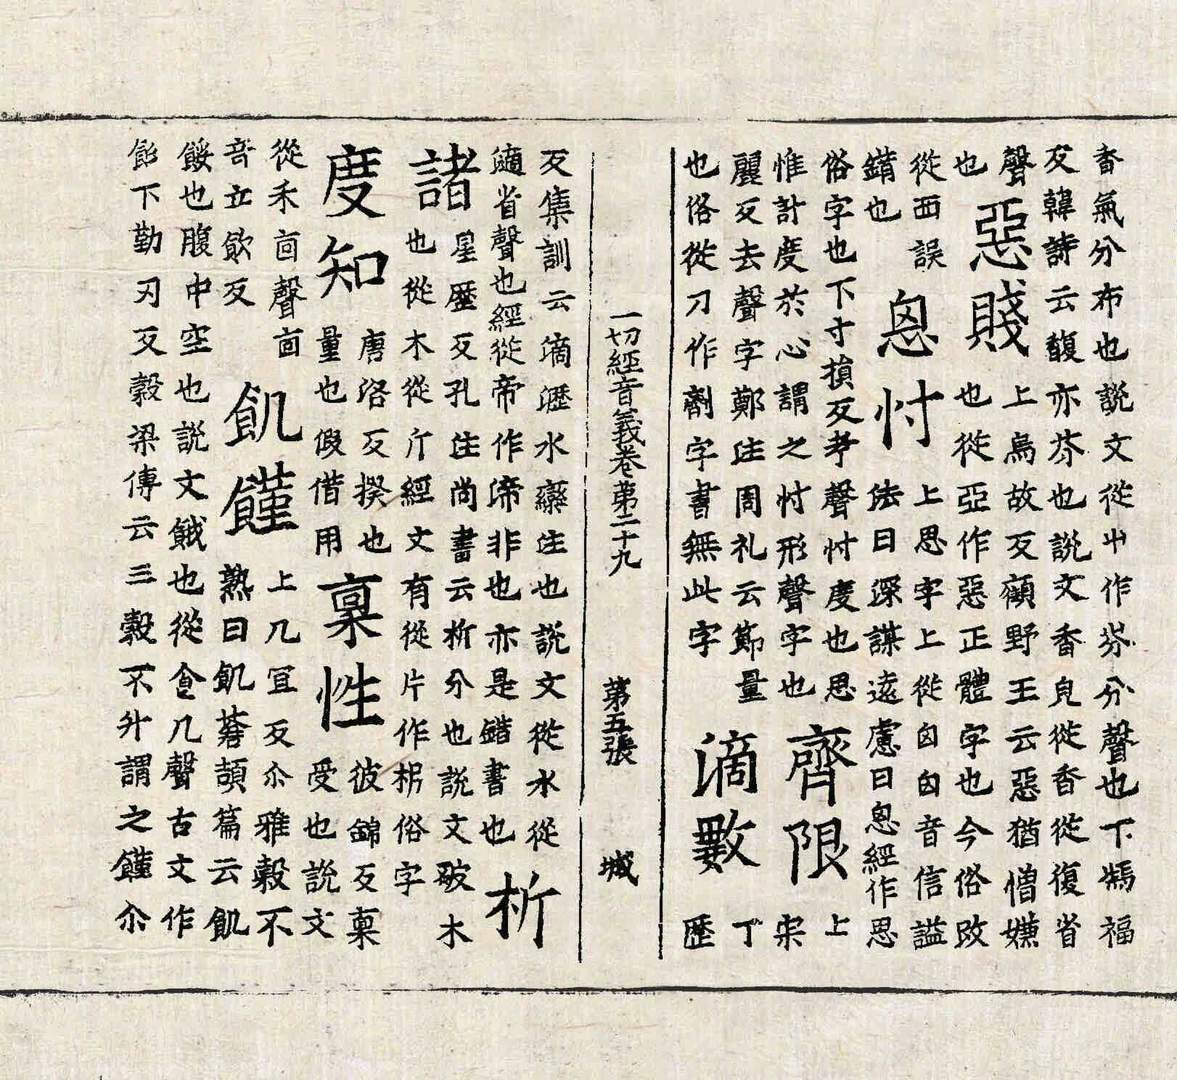 香氣分布也説文從屮作芬分聲也下福
反韓詩云馥亦芬也説文香皃從香從復省
聲
也
惡賤
上烏故反顧野王云惡猶憎嫌
也從亞作惡正體字也今俗改
從西誤
錯也
恖忖
上思字上從囟囟音信謚
法曰深謀遠慮曰恖經作思
俗字也下寸損反考聲忖度也思
惟計度於心謂之忖形聲字也
齊限
上
宋
麗反去聲字鄭注周礼云節量
也俗從刀作劑字書無此字
滴數
丁
歷
一切經音義卷第二十九 第五張 城
反集訓云滴瀝水藥注也説文從水從
適省聲也經從帝作渧非也亦是錯書也
析
諸
星歷反孔注尚書云析分也説文破木
也從木從斤經文有從片作枬俗字
度知
唐洛反揆也
量也假借用
稟性
彼錦反稟
受也説文
從禾㐭聲㐭
音立飲反
飢饉
上几冝反尒雅穀不
熟曰飢蒼頡篇云飢
餒也腹中空也説文餓也從食几聲古文作
下勤刃反穀梁傳云三穀不升謂之饉尒